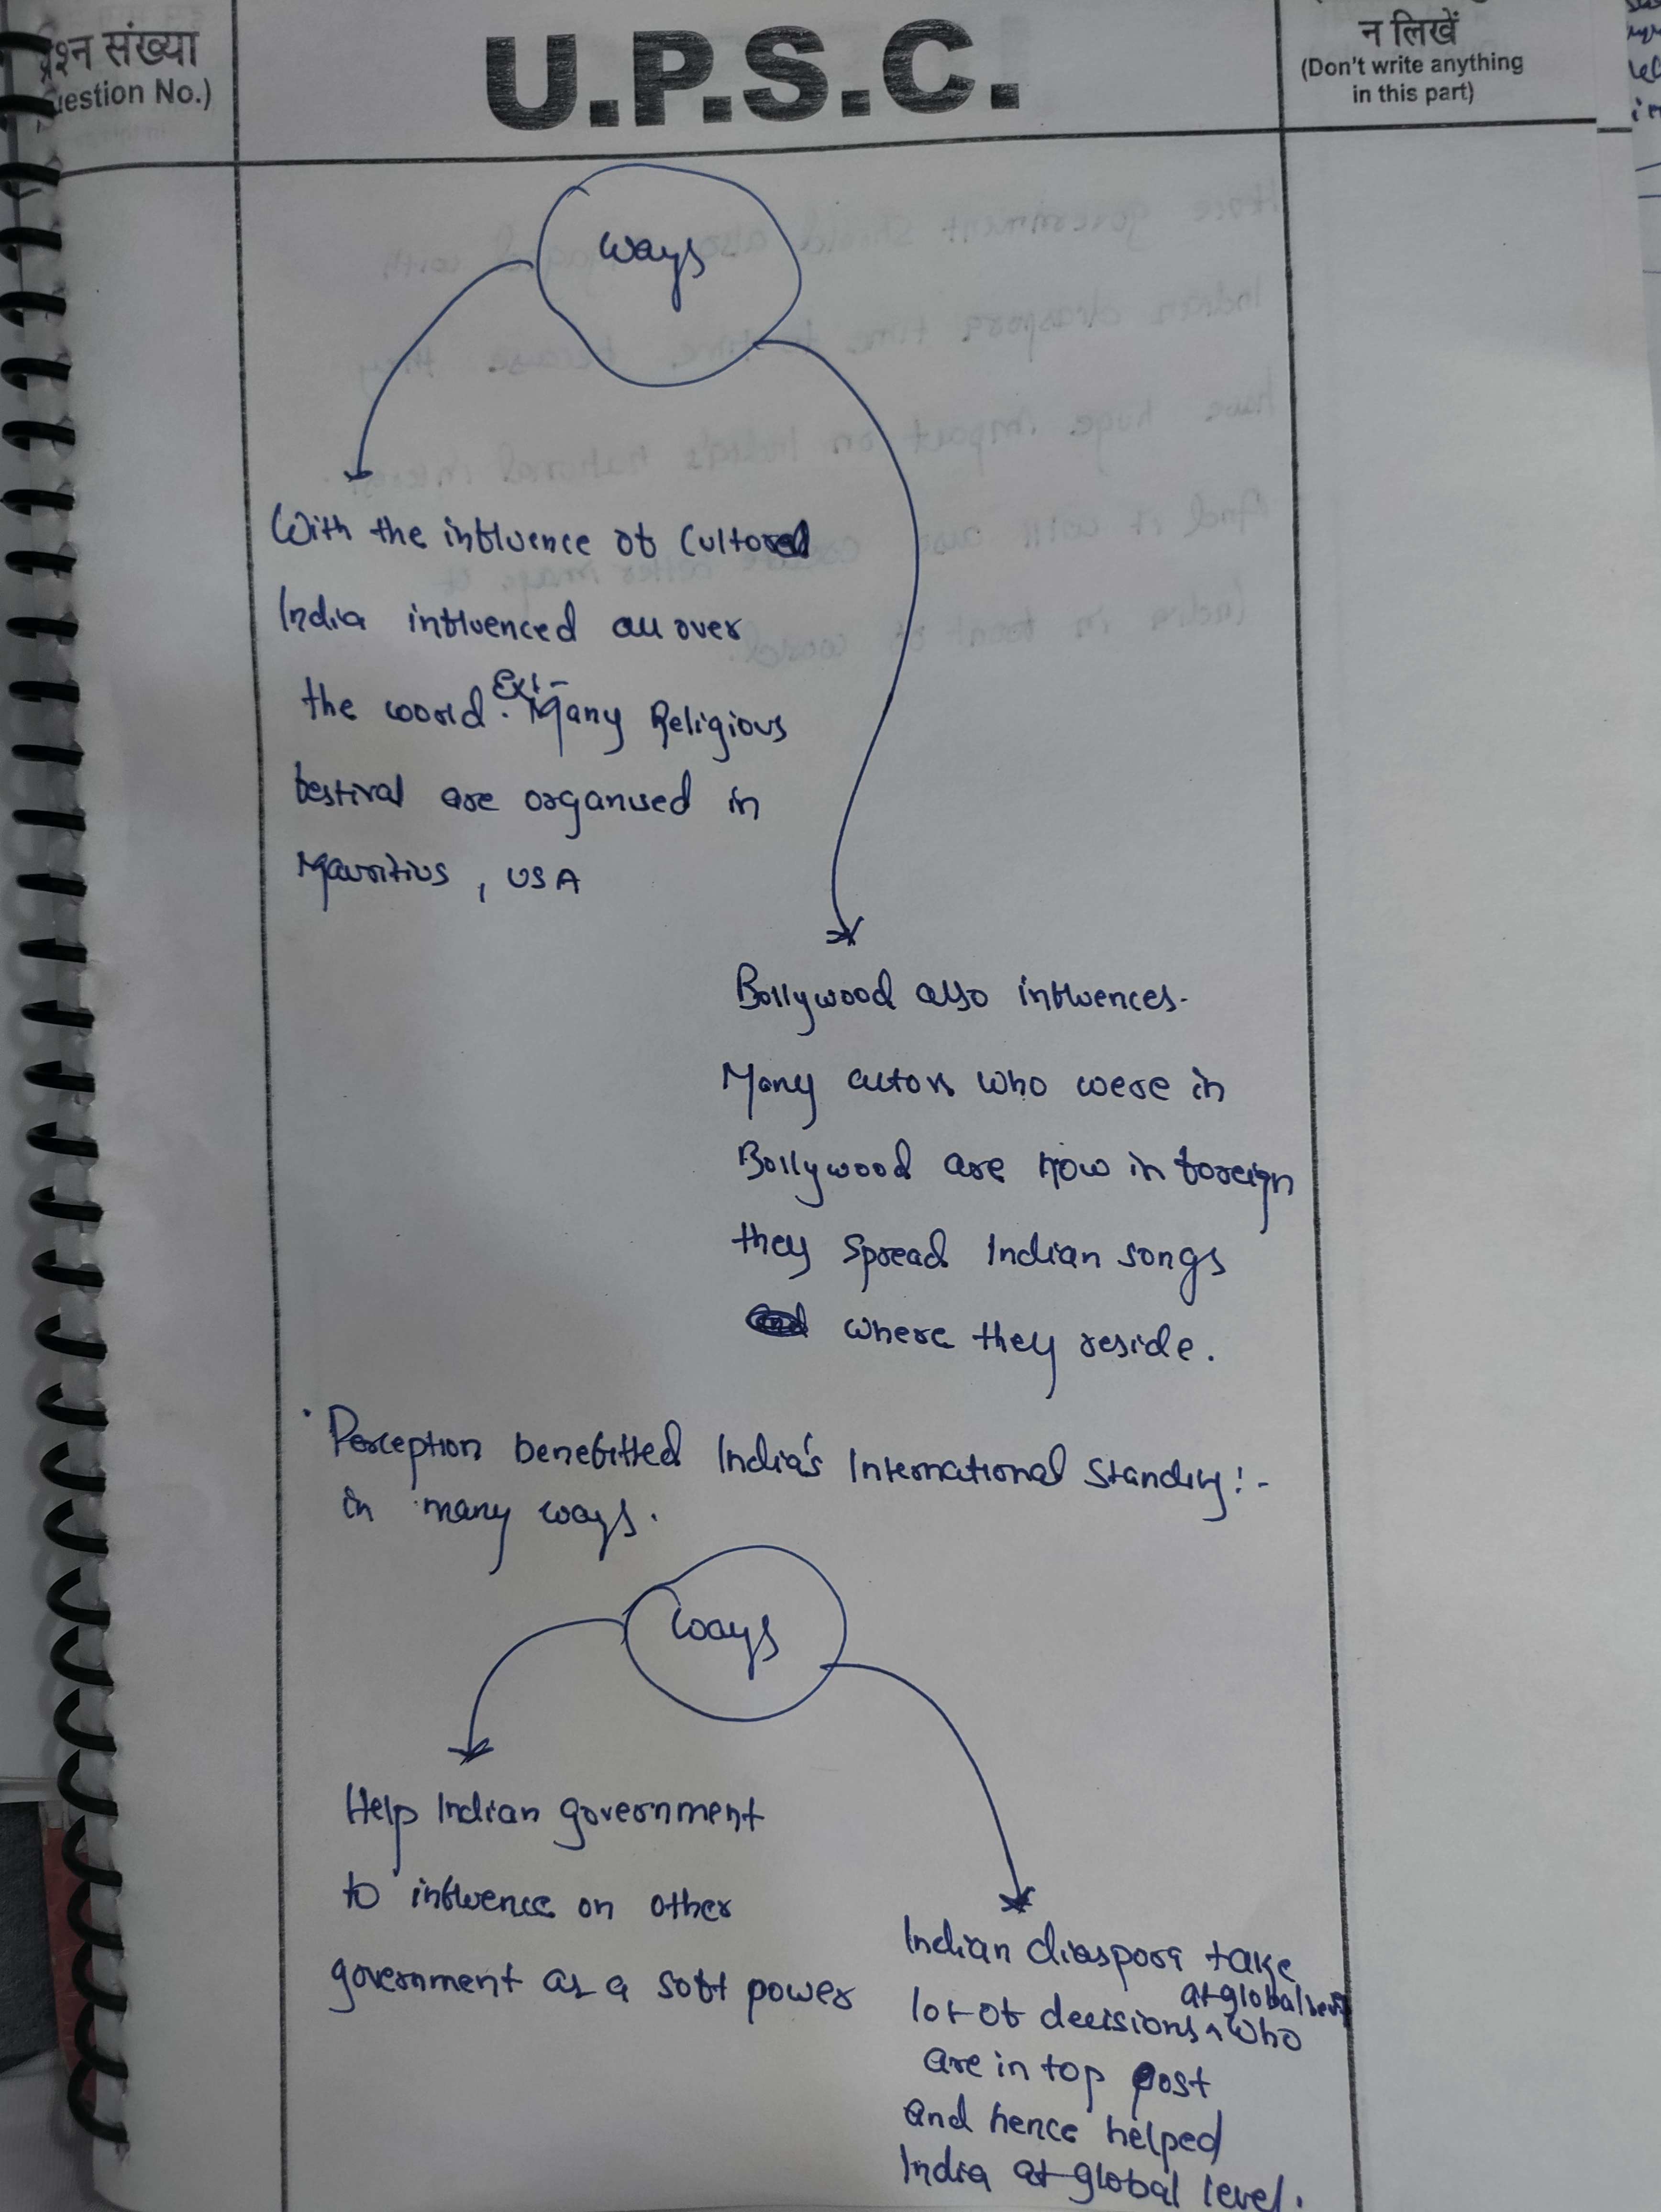 प्रश्न संख्या
uestion No.)
U.P.S.C.
न लिखें
(Don't write anything
in this part)
Ways
With the influence of Cultural
India influenced all over
the world. Ex:- Many Religious
festival are organised in
Mauritius, USA
Bollywood also influences.
Many actors who were in
Bollywood are now in foreign
they spread Indian songs
where they reside.
• Perception benefitted India's International Standing:-
in many ways.
Ways
Help Indian government
to influence on other
government as a soft power
Indian diaspora take
lot of decisions at global level who
are in top post
and hence helped
India at global level.